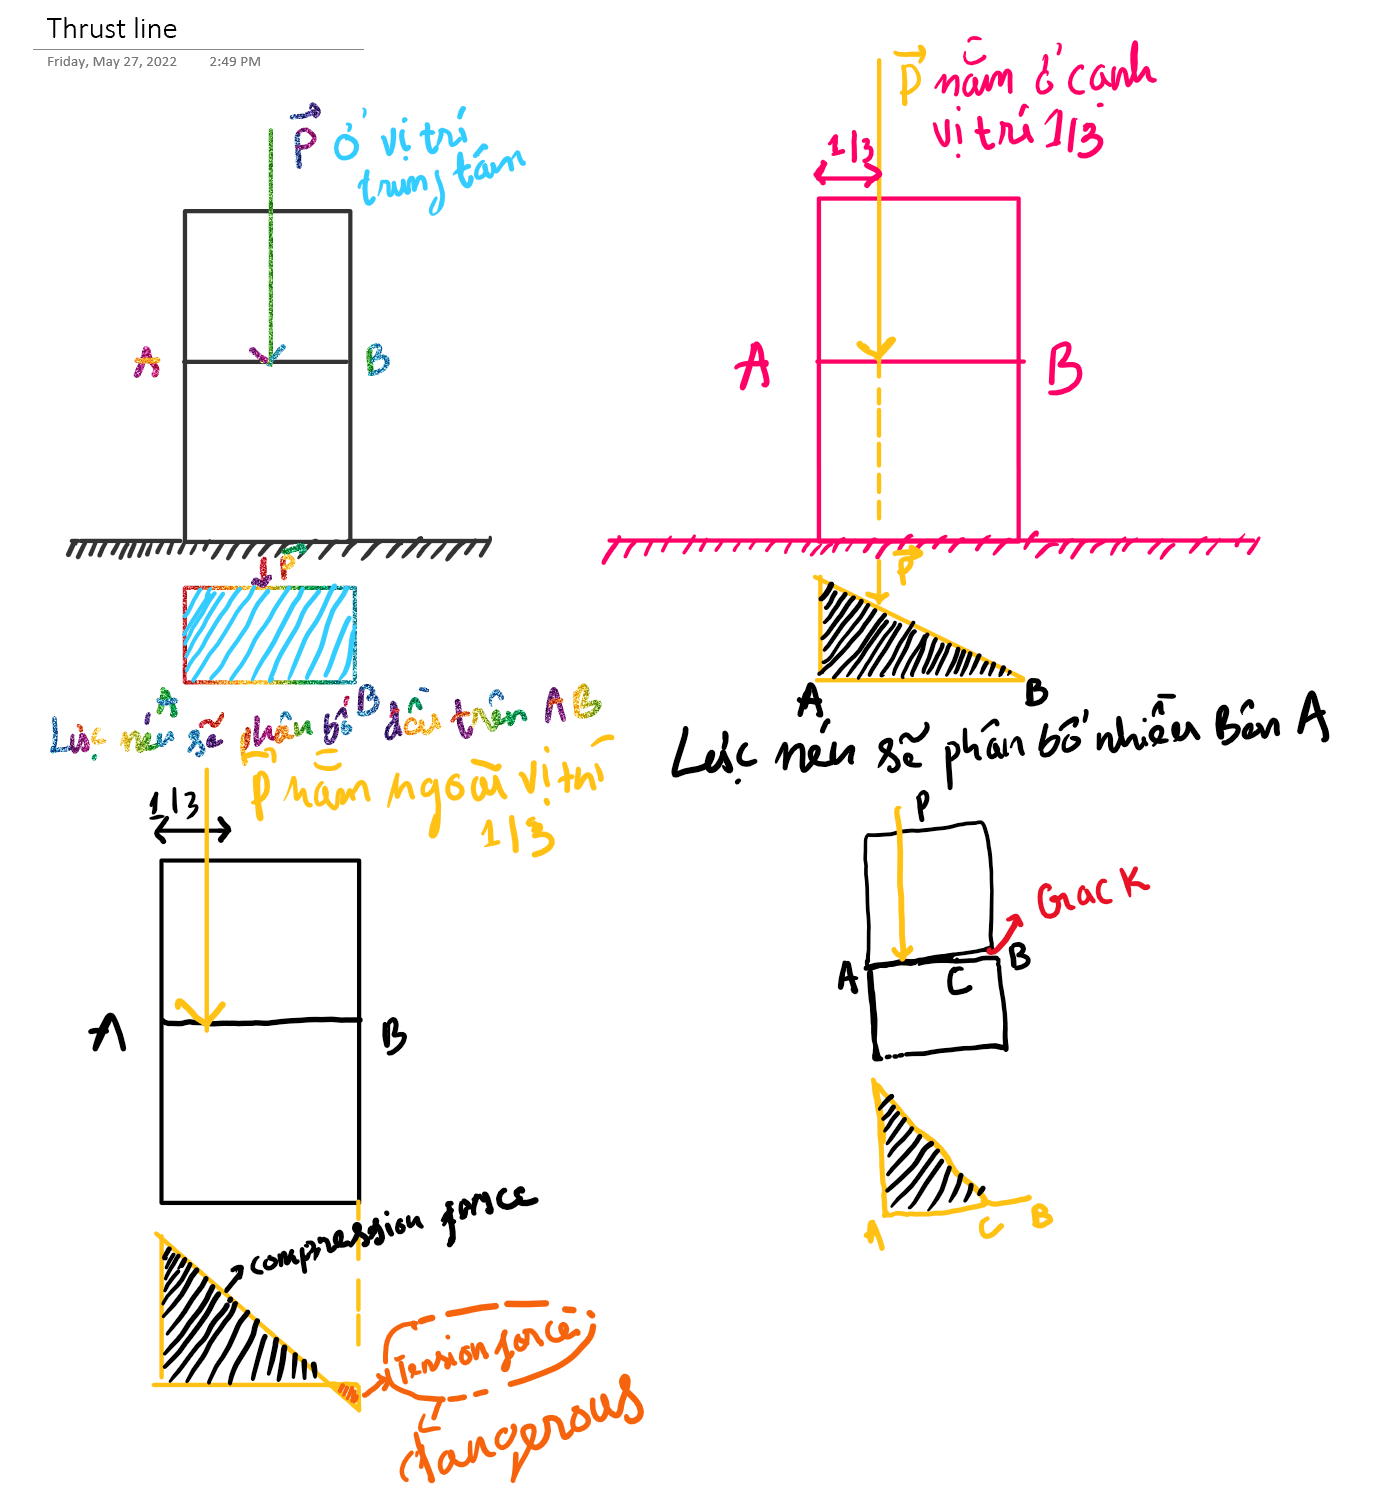 Thrust line
Friday, May 27, 2022 2:49 PM
P ở vị trí
trung tâm
A B
P
A B
Lực nén sẽ phân bố đều trên AB
P nằm ở cạnh
vị trí 1/3
1/3
A B
P
A B
Lực nén sẽ phân bố nhiều Bên A
P nằm ngoài vị trí
1/3
1/3
A B
compression force
Tension force
dangerous
P
Crack
A C B
A C B